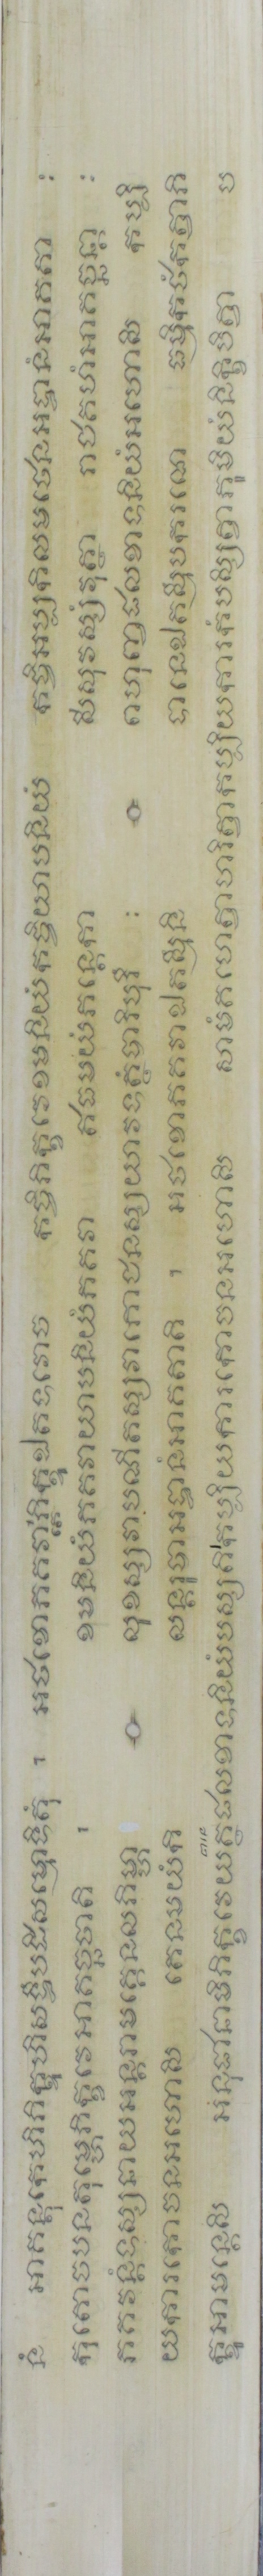 នំ អាគន្តុកេហិភិក្ខូហិសទ្ធឹបដិសម្មោទិតុំ ។ អថខោភគវាភិក្ខូឯតទវោច កច្ចិភិក្ខវេខមនិយំកច្ចិយាបនិយំ កច្ចិអប្បកិលមថេនអទ្ធានំអាគតា ៈ
កុតោចបនតុម្ហេភិក្ខវេអាគច្ឆថាតិ ។ ខមនិយំភគវាយាបនិយំភគវា ឥធមយំភន្តេកា សីសុវស្សំវុត្ថា រាជគហំអាគច្ឆន្តា ៈ
ភគវន្តំទស្សនាយអន្តរាមគ្គេនលភិម្ហា លុខស្សវាបណីតស្សវាភោជនស្សយាវទត្ថំបារិបុរឹ ៈ ពហុញ្ចផលខាទនិយំអហោសិ កប្បិ
យការកោចនអហោសិ តេនមយំកិ លន្តរូបាអទ្ធានំអាគតាតិ ។ អថខោភគវាឯតស្មឹនិ ទានេឯតស្មឹបករណេ ធម្មិកថំកត្វាភិ
ក្ខូអាមន្តេសិ អនុជានាមិភិក្ខវេយត្ថផលខាទនិយំបស្សតិកប្បិយការកោចនអហោសិ សាមំគហេត្វាហរិត្វាកប្បិយការកំបស្សិត្វាភូមិយំនិក្ខិបិត្វា ប